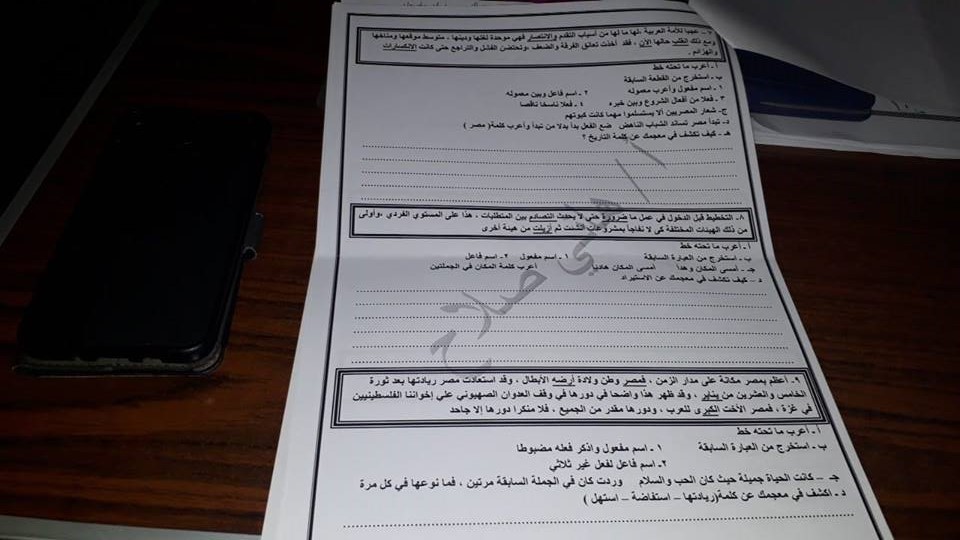 ٧ – عجبا للأمة العربية ، لها ما لها من أسباب التقدم والانتصار فهي موحدة لغتها ودينها ، متوسط موقعها ومناخها
ومع ذلك انقلب حالها الآن ، فقد أخذت تعانق الفرقة والضعف ،وتحتضن الفشل والتراجع حتى كانت الانكسارات
والهزائم .
أ - أعرب ما تحته خط
ب - استخرج من القطعة السابقة
١ - اسم مفعول وأعرب معموله ٢ - اسم فاعل وبين معموله
٣ - فعلا من أفعال الشروع وبين خبره ٤ - فعلا ناسخا ناقصا
ج - شعار المصريين ألا يستسلموا مهما كانت كبوتهم
د - تبدأ مصر تساند الشباب الناهض ضع الفعل بدأ بدلا من تبدأ وأعرب كلمة( مصر )
هـ - كيف تكشف في معجمك عن كلمة التاريخ ؟
أ / هاني صلاح
٨- التخطيط قبل الدخول في عمل ما ضرورة حتى لا يحدث التصادم بين المتطلبات ، هذا على المستوي الفردي ،وأولى
من ذلك الهيئات المختلفة كي لا نفاجأ بمشروعات أنشئت ثم أزيلت من هيئة أخرى
أ - أعرب ما تحته خط
ب - استخرج من العبارة السابقة ١ - اسم مفعول ٢ - اسم فاعل
جـ - أمسى المكان وهدأ أمسى المكان هادئا أعرب كلمة المكان في الجملتين
د – كيف تكشف في معجمك عن الاستيراد
٩- أعظم بمصر مكانة على مدار الزمن ، فمصر وطن ولادة أرضه الأبطال ، وقد استعادت مصر ريادتها بعد ثورة
الخامس والعشرين من يناير ، وقد ظهر هذا واضحا في دورها في وقف العدوان الصهيوني علي إخواننا الفلسطينيين
في غزة ، فمصر الأخت الكبرى للعرب ، ودورها مقدر من الجميع ، فلا منكرا دورها إلا جاحد
أ - أعرب ما تحته خط
ب - استخرج من العبارة السابقة ١ - اسم مفعول واذكر فعله مضبوطا
٢ - اسم فاعل لفعل غير ثلاثي
جـ – كانت الحياة جميلة حيث كان الحب والسلام وردت كان في الجملة السابقة مرتين ، فما نوعها في كل مرة
د - اكشف في معجمك عن كلمة(ريادتها – استفاضة – استهل )